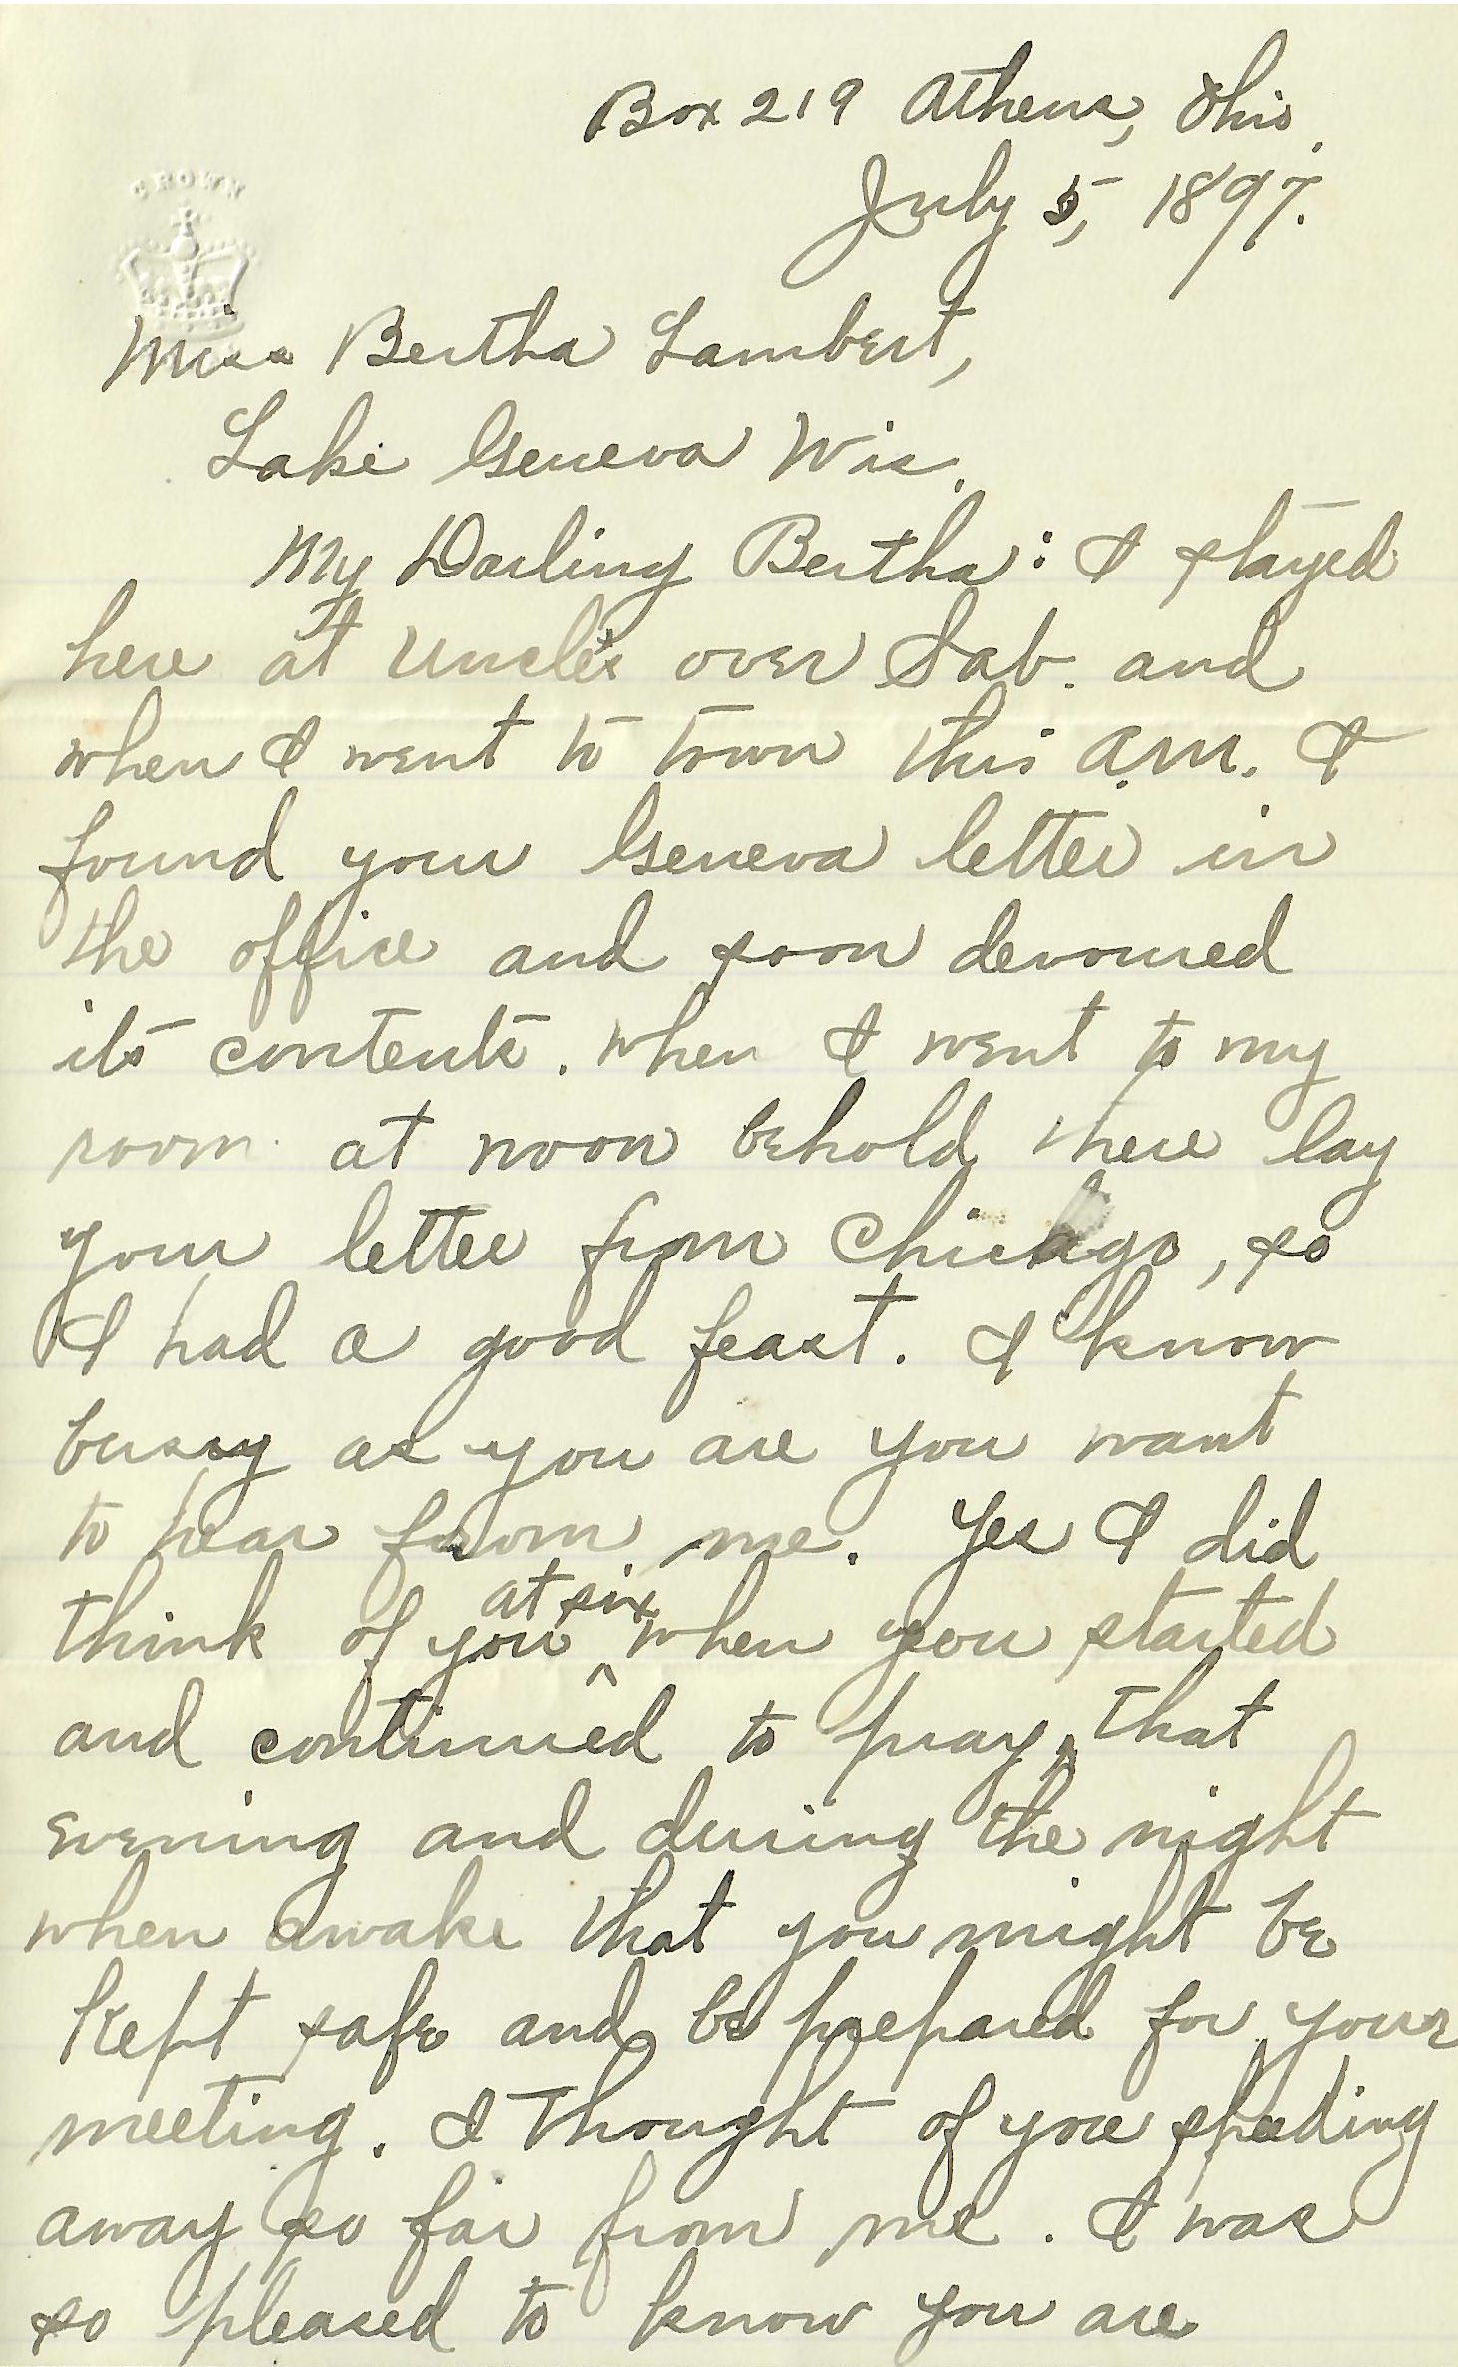 Box 219 Athens, Ohio.
July 5, 1897.
CROWN
Miss Bertha Lambert,
Lake Geneva Wis.
My Darling Bertha: I stayed
here at Uncle's over Sab. and
when I went to town this A.M. I
found your Geneva letter in
the office and soon devoured
its contents. When I went to my
room at noon behold there lay
your letter from Chicago, so
I had a good feast. I know
bussy as you are you want
to hear from me. Yes I did
think of you at six when you started
and continued to pray, that
evening and during the night
when awake that you might be
kept safe and be prepared for your
meeting. I thought of you speeding
away so far from me. I was
so pleased to know you are